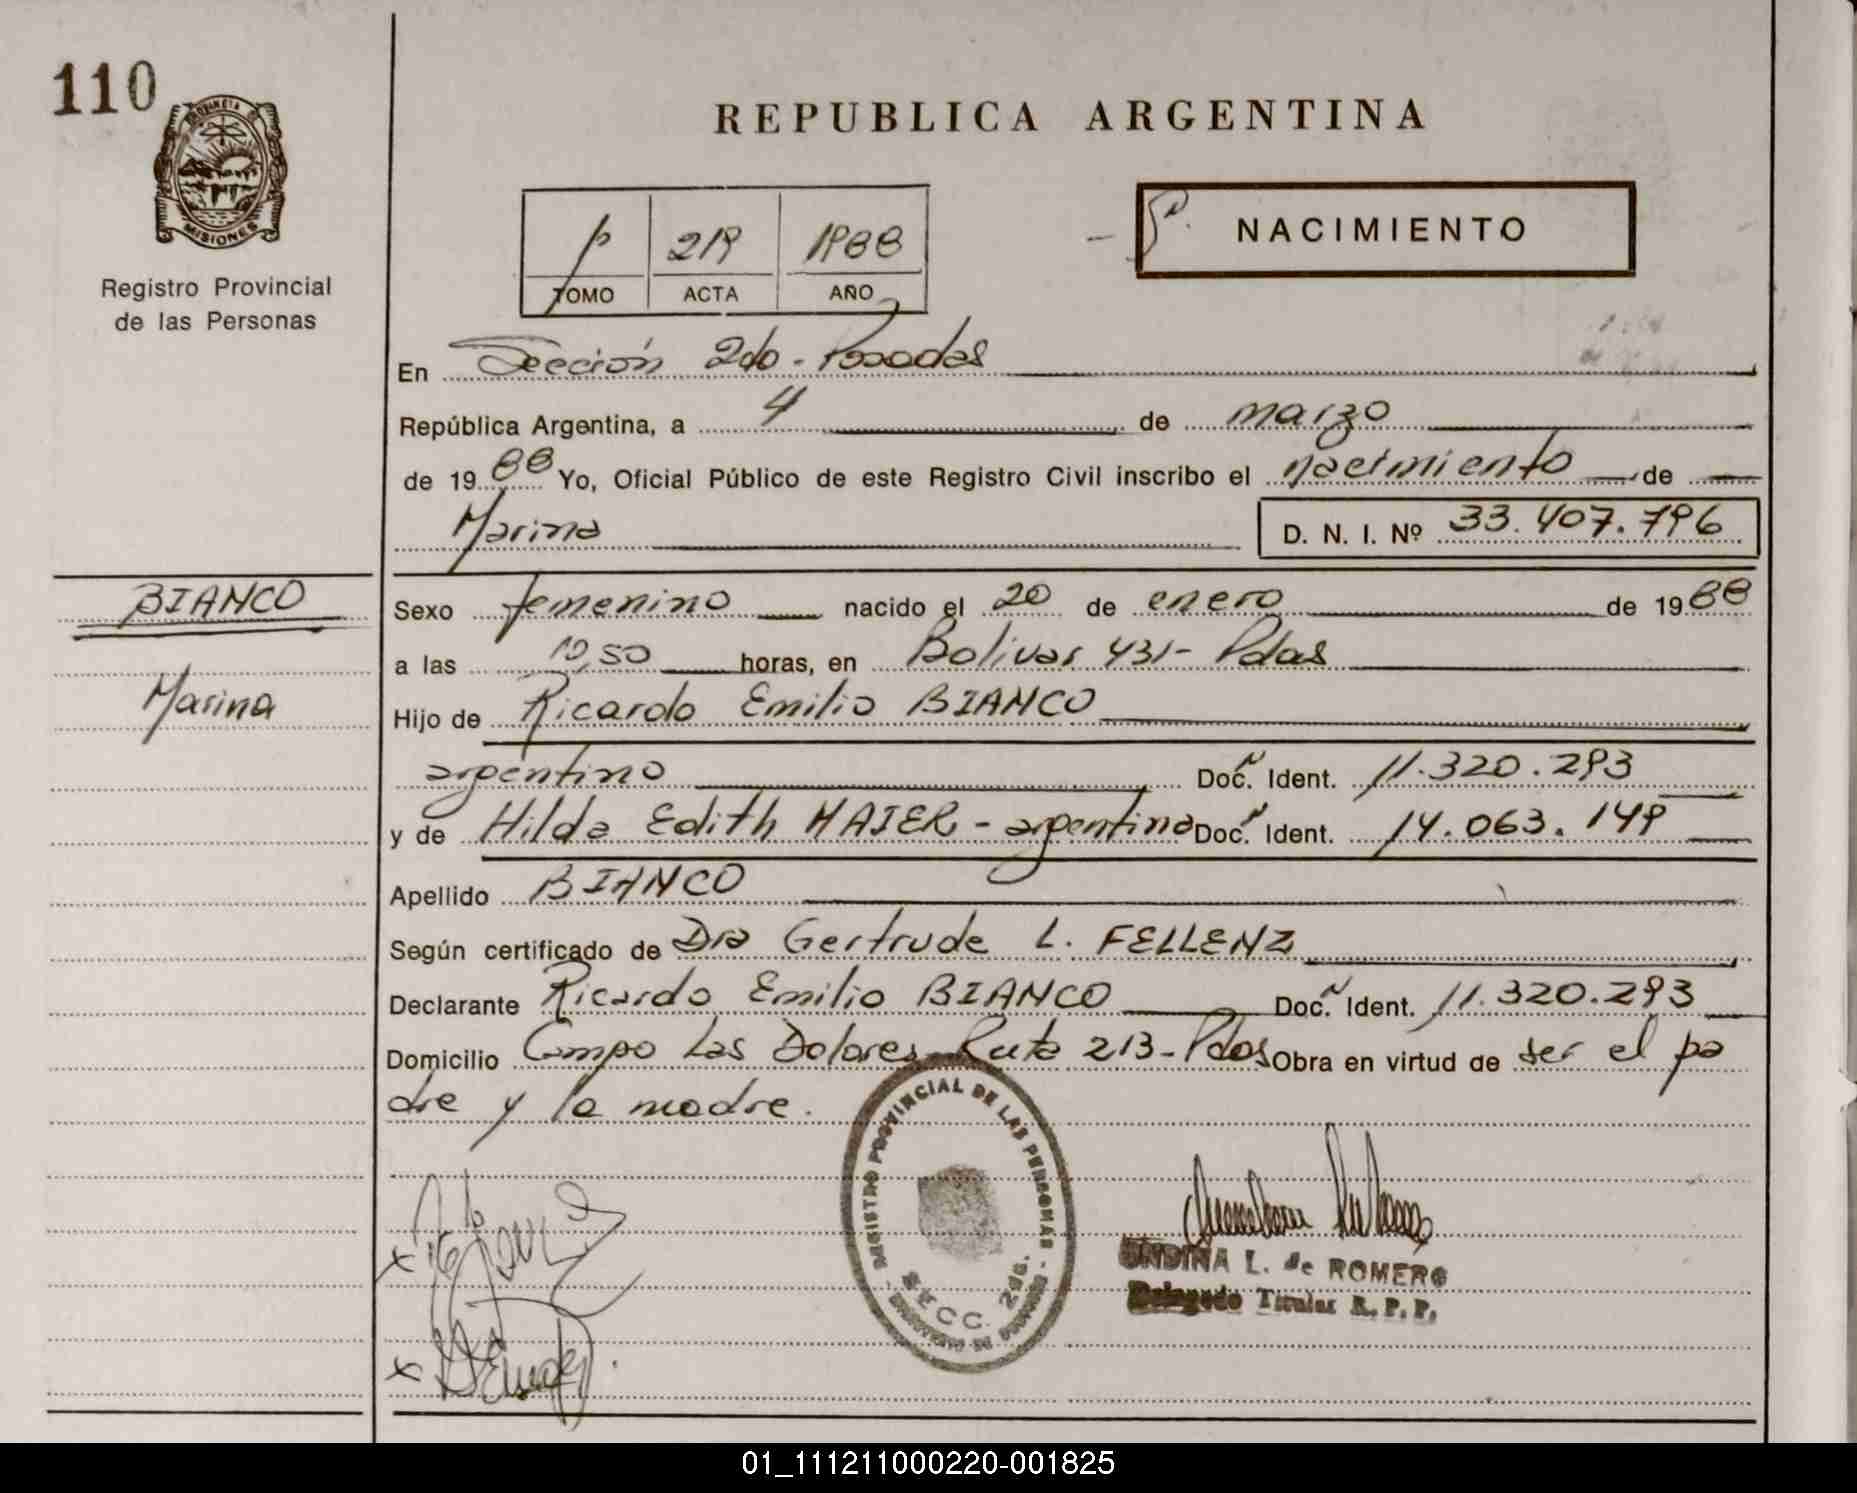 110
MISIONES
Registro Provincial
de las Personas
REPUBLICA ARGENTINA
219 1988
TOMO ACTA AÑO
NACIMIENTO
En Sección 2da - Posadas
República Argentina, a 4 de marzo
de 1988 Yo, Oficial Público de este Registro Civil inscribo el nacimiento de
Marina D. N. I. Nº 33.407.796
BIANCO
Marina
Sexo femenino nacido el 20 de enero de 1988
a las horas, en Bolivar 431- Pdas
Hijo de Ricardo Emilio BIANCO
argentino Doc. Ident. 11.320.293
y de Hilda Edith MAIER - argentina Doc. Ident. 14.063.149
Apellido BIANCO
Según certificado de Dra Gertrude L. FELLENZ
Declarante Ricardo Emilio BIANCO Doc. Ident. 11.320.293
Domicilio Campo Las Dolores Ruta 213 - Pdas Obra en virtud de ser el pa
dre y la madre.
REGISTRO PROVINCIAL DE LAS PERSONAS
SECC. 2da.
ONDINA L. de ROMERO
Delegado Titular R. P. P.
01_111211000220-001825